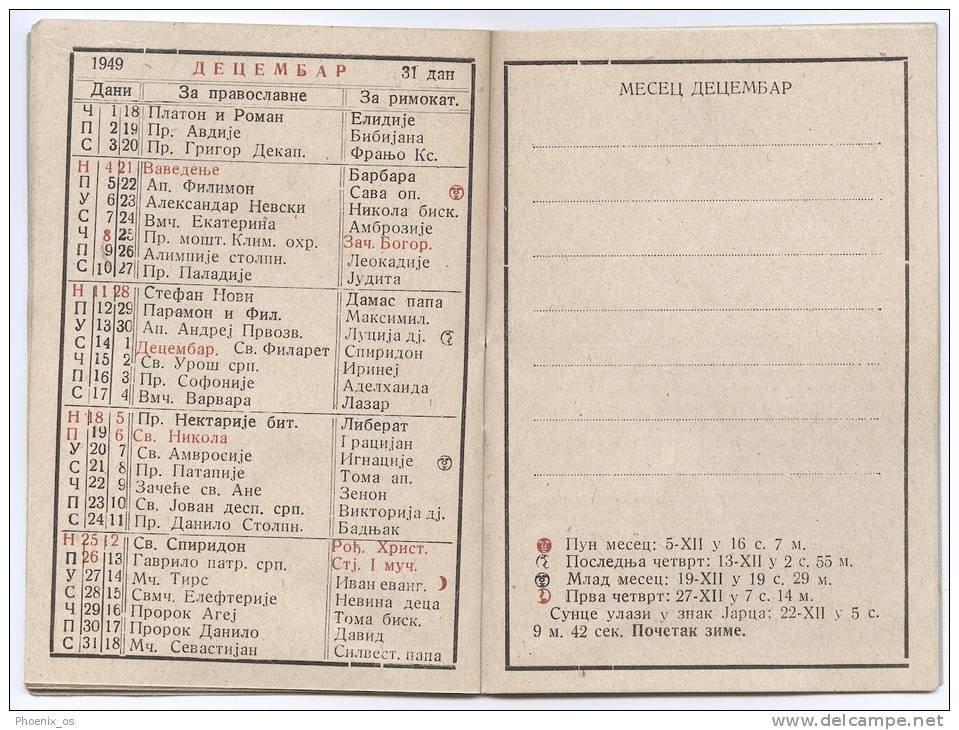 1949 ДЕЦЕМБАР 31 дан
Дани За православне За римокат.
Ч 1 18 Платон и Роман Елидије
П 2 19 Пр. Авдије Бибијана
С 3 20 Пр. Григор Декап. Фрањо Кс.
Н 4 21 Ваведење Барбара
П 5 22 Ап. Филимон Сава оп.
У 6 23 Александар Невски Никола биск.
С 7 24 Вмч. Екатерина Амброзије
Ч 8 25 Пр. мошт. Клим. охр. Зач. Богор.
П 9 26 Алимпије столпн. Леокадије
С 10 27 Пр. Паладије Јудита
Н 11 28 Стефан Нови Дамас папа
П 12 29 Парамон и Фил. Максимил.
У 13 30 Ап. Андреј Првозв. Луција дј.
С 14 1 Децембар. Св. Филарет Спиридон
Ч 15 2 Св. Урош срп. Иринеј
П 16 3 Пр. Софоније Аделхаида
С 17 4 Вмч. Варвара Лазар
Н 18 5 Пр. Нектарије бит. Либерат
П 19 6 Св. Никола Грацијан
У 20 7 Св. Амвросије Игнације
С 21 8 Пр. Патапије Тома ап.
Ч 22 9 Зачеће св. Ане Зенон
П 23 10 Св. Јован десп. срп. Викторија дј.
С 24 11 Пр. Данило Столпн. Бадњак
Н 25 12 Св. Спиридон Рођ. Христ.
П 26 13 Гаврило патр. срп. Стј. I муч.
У 27 14 Мч. Тирс Иван еванг.
С 28 15 Свмч. Елефтерије Невина деца
Ч 29 16 Пророк Агеј Тома биск.
П 30 17 Пророк Данило Давид
С 31 18 Мч. Севастијан Силвест. папа
МЕСЕЦ ДЕЦЕМБАР
Пун месец: 5-XII у 16 с. 7 м.
Последња четврт: 13-XII у 2 с. 55 м.
Млад месец: 19-XII у 19 с. 29 м.
Прва четврт: 27-XII у 7 с. 14 м.
Сунце улази у знак Јарца: 22-XII у 5 с.
9 м. 42 сек. Почетак зиме.
Phoenix_os
www.delcampe.net